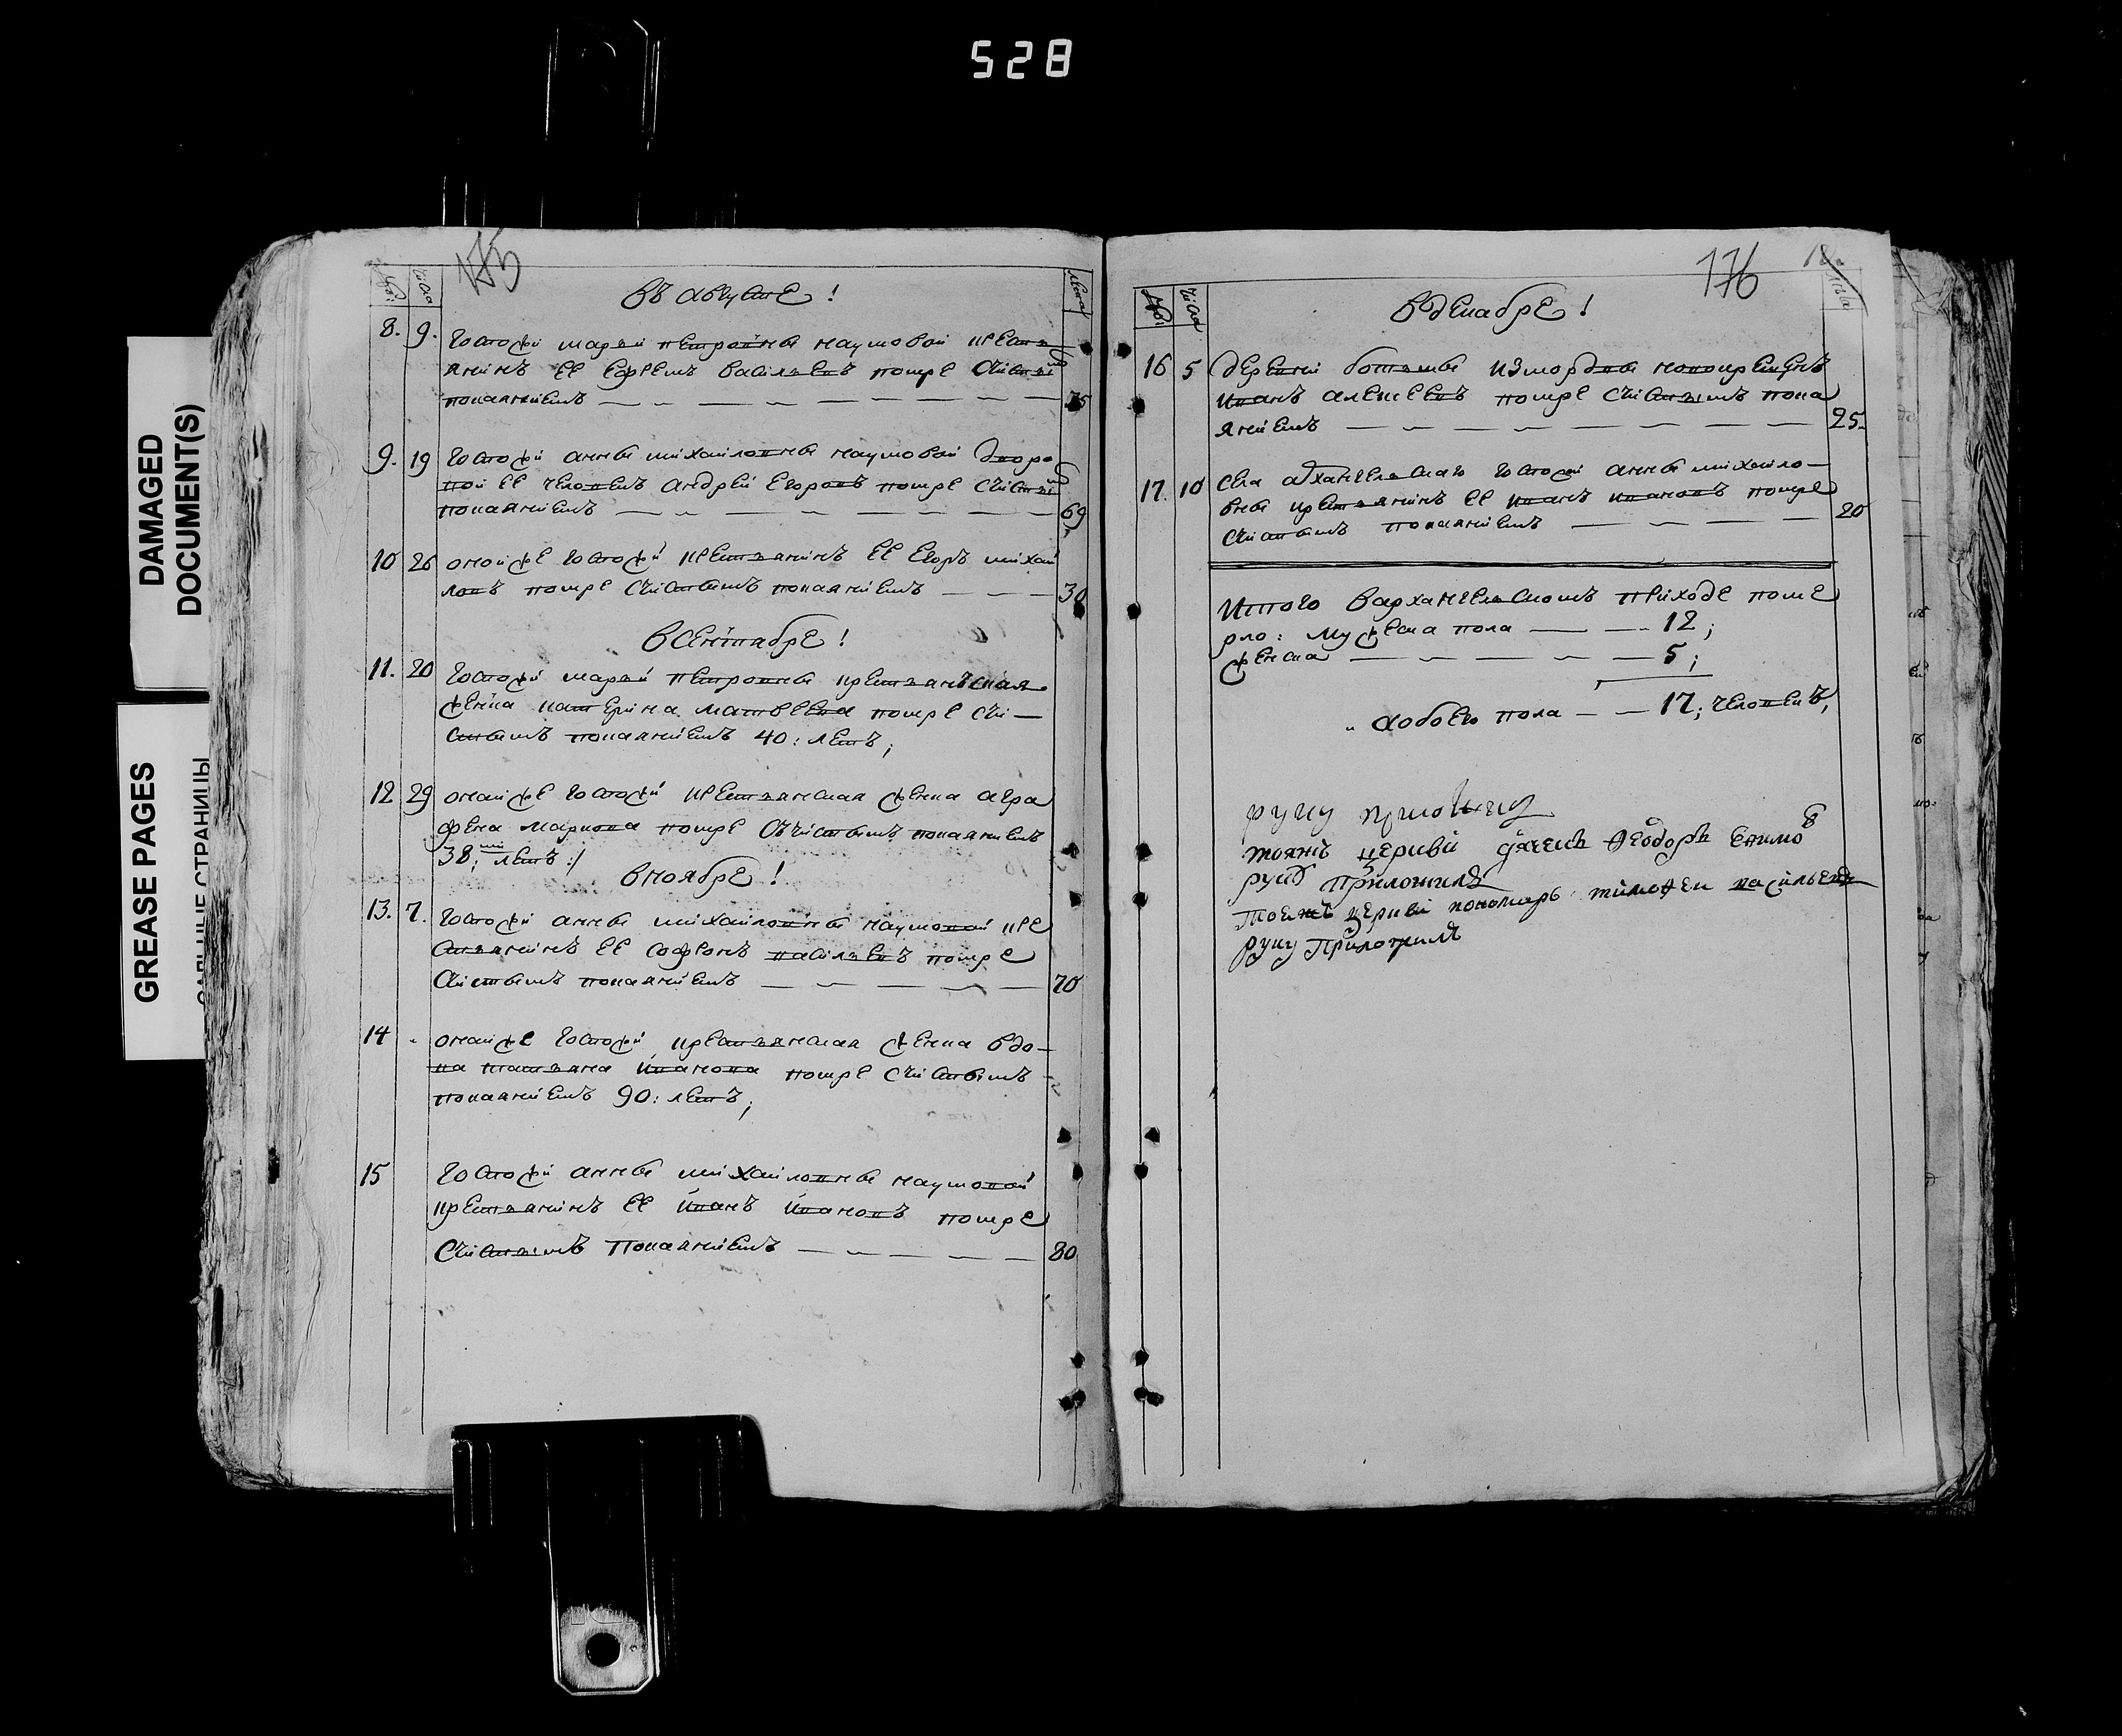 528
DAMAGED
DOCUMENT(S)
GREASE PAGES
САЛЬНЫЕ СТРАНИЦЫ
175
въ августе!
8. 9. Госпожи марьи петровны наумовой кресть
янинъ ее ефремъ васильевъ помре съисти
покаяниемъ 75
9. 19 Госпожи анны михайловны наумовой дворо
вой ее человекъ андрей егоровъ помре съисти
покаяниемъ 69
10 26 оной же госпожи крестьянинъ ее егоръ михай
ловъ помре съистымъ покаяниемъ 30
в сентябре!
11. 20 Госпожи марьи петровны крестьянъская
женка катерина матвеева помре съи
стымъ покаяниемъ 40: летъ;
12 29 оной же госпожи крестьянская женка агра
фена маркова помре съистымъ покаяниемъ
38; летъ :/
в ноябре!
13. 7. Госпожи анны михайловны наумовой кре
стьянинъ ее софронъ васильевъ помре
съистымъ покаяниемъ 70
14 оной же госпожи крестьянская женка вдо
ва татьяна иванова помре съистымъ
покаяниемъ 90: летъ;
15 Госпожи анны михайловны наумовой
крестьянинъ ее иванъ ивановъ помре
съистымъ покаяниемъ 80
176
в декабре!
16 5 деревни ботьмы измордвы новокрещенъ
иванъ алексеевъ помре съистымъ пока
яниемъ 25
17. 10 села архангельскаго госпожи анны михайло
вны крестьянинъ ее иванъ ивановъ помре
съистымъ покаяниемъ 20
Итого в архангельскомъ приходе поме
рло: мужеска пола 12;
женска 5;
а обоего пола 17; человекъ,
руку приложилъ
тояжъ церкви дьячекъ Ѳеодоръ
руку приложилъ
тоежъ церкви пономарь тимоѳеи васильевъ
руку приложилъ